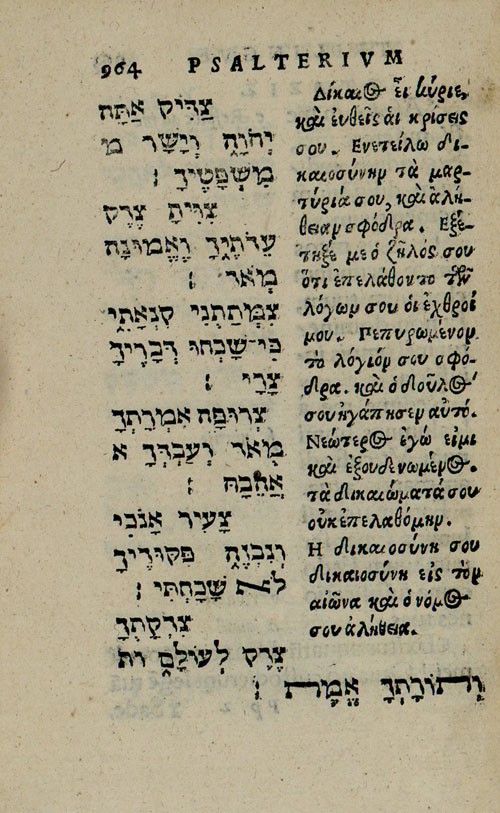 964 PSALTERIVM
צַדִּיק אַתָּה
יְהֹוָה וְיָשָׁר מ
מִשְׁפָּטֶיךָ :
צִוִּיתָ צֶדֶק
עֵדֹתֶיךָ וֶאֱמוּנָה
מְאֹד :
צִמְּתַתְנִי קִנְאָתִי
כִּי־שָׁכְחוּ דְבָרֶיךָ
צָרָי :
צְרוּפָה אִמְרָתְךָ
מְאֹד וְעַבְדְּךָ א
אֲהֵבָהּ :
צָעִיר אָנֹכִי
וְנִבְזֶה פִּקּוּדֶיךָ
לֹא שָׁכָחְתִּי :
צִדְקָתְךָ
צֶדֶק לְעוֹלָם וְת
וְתוֹרָתְךָ אֱמֶת :
Δίκαιος εἶ κύριε,
καὶ ἐυθεῖς ἁι κρίσεις
σου. Ενετείλω δι-
καιοσύνην τὰ μαρ-
τύριά σου, καὶ ἀλή-
θειαν σφόδρα. Εξέ-
τηξέ με ὁ ζῆλός σου
ὅτι ἐπελάθοντο τῶν
λόγων σου ὁι ἐχθροί
μου. Πεπυρωμένον
τὸ λόγιόν σου σφό-
δρα. καὶ ὁ δοῦλός
σου ἠγάπησεν αυτό.
Νεώτερος ἐγώ εἰμι
καὶ ἐξουδενωμένος.
τὰ δικαιώματά σου
οὐκ ἐπελαθόμην.
Η δικαιοσύνη σου
δικαιοσύνη εἰς τὸν
αἰῶνα καὶ ὁ νόμος
σου ἀλήθεια.